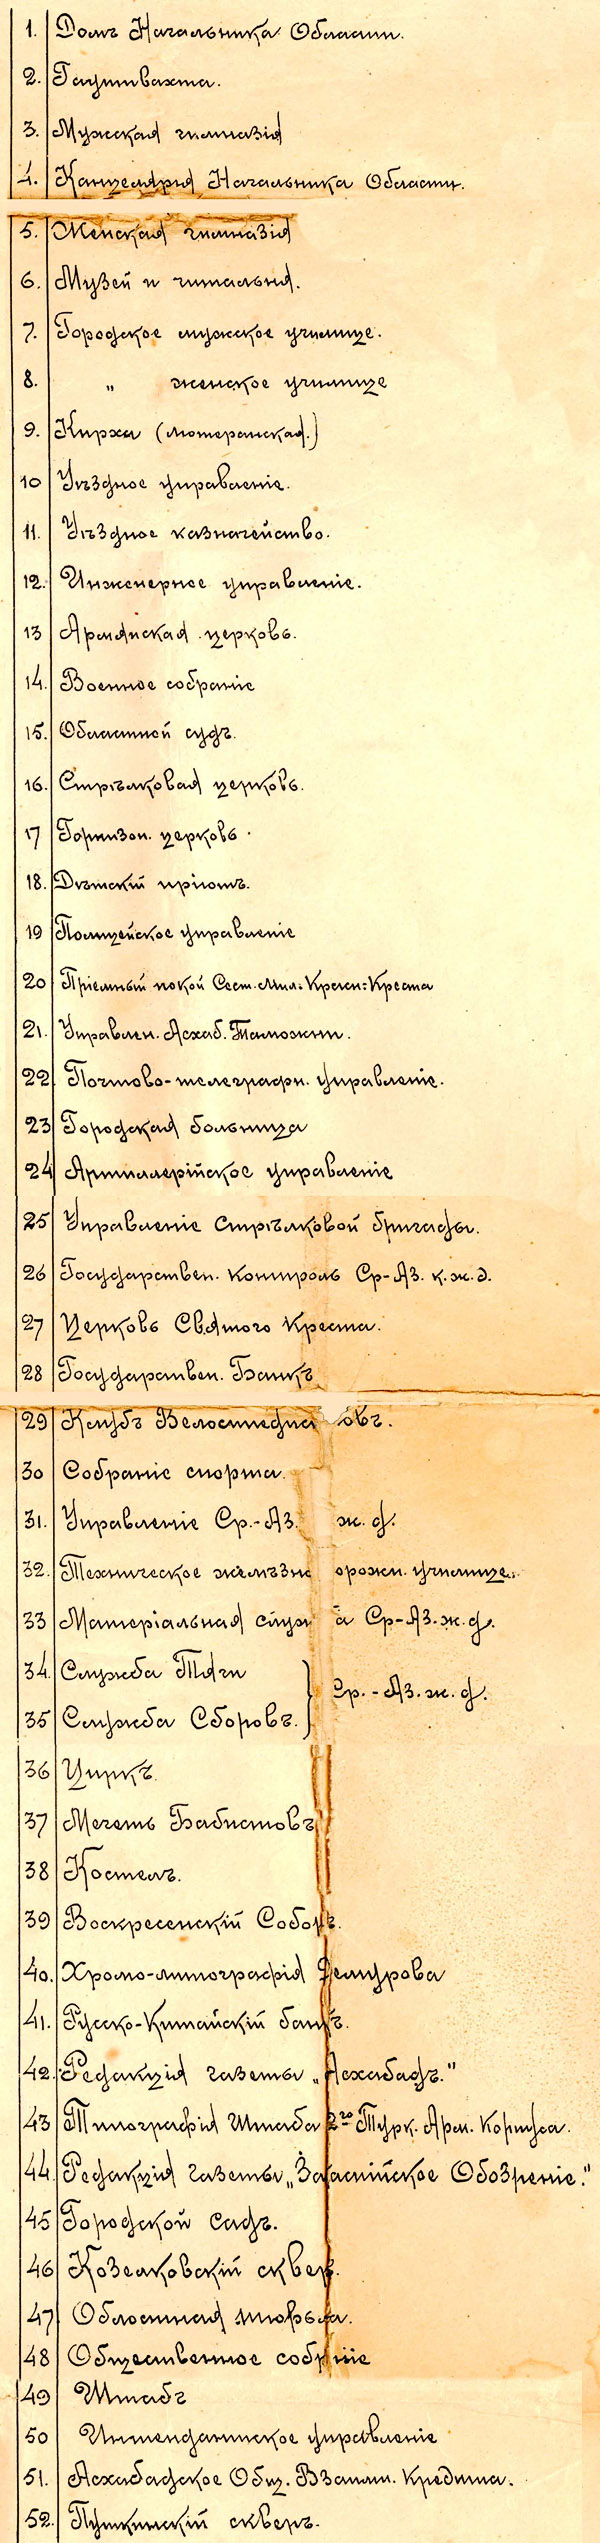 1. Домъ Начальника Области.
2. Гауптвахта.
3. Мужская гимназія
4. Канцелярія Начальника Области.
5. Женская гимназія
6. Музей и читальня.
7. Городское мужское училище.
8. " женское училище
9. Кирха (лютеранская.)
10 Уѣздное управленіе.
11. Уѣздное казначейство.
12. Инженерное управленіе.
13 Армянская церковь.
14. Военное собраніе
15. Областной судъ.
16. Стрѣлковая церковь.
17 Гарнизон. церковь.
18. Дѣтскій пріютъ.
19 Полицейское управленіе
20 Пріемный покой Сест. Мил: Красн: Креста
21. Управлен. Асхаб. Таможни.
22. Почтово-телеграфн. управленіе.
23 Городская больница
24 Артиллерійское управленіе
25 Управленіе Стрѣлковой бригады.
26 Государствен. контроль Ср-Аз. к. ж. д.
27 Церковь Святого Креста.
28 Государствен. Банкъ
29 Клубъ Велосипедис овъ.
30 Собраніе спорта.
31. Управленіе Ср.-Аз. ж. д.
32. Техническое желѣзно орожн. училище.
33 Матеріальная служ а Ср-Аз. ж. д.
34. Служба Тяги
Ср.-Аз. ж. д.
35 Служба Сборовъ.
36 Циркъ.
37 Мечеть Бабистовъ
38 Костелъ.
39 Воскресенскій Соборъ.
40. Хромо-литографія Федорова
41. Русско-Китайскій банкъ.
42. Редакція газеты „Асхабадъ."
43 Типографія Штаба 2го Турк. Арм. Корпуса.
44. Редакція газеты „Закаспійское Обозреніе."
45 Городской садъ.
46 Козелковскій скверъ.
47 Областная тюрьма.
48 Общественное собраніе
49 Штабъ
50 Интендантское управленіе
51. Асхабадское Общ. Взаимн. Кредита.
52. Пушкинскій скверъ.